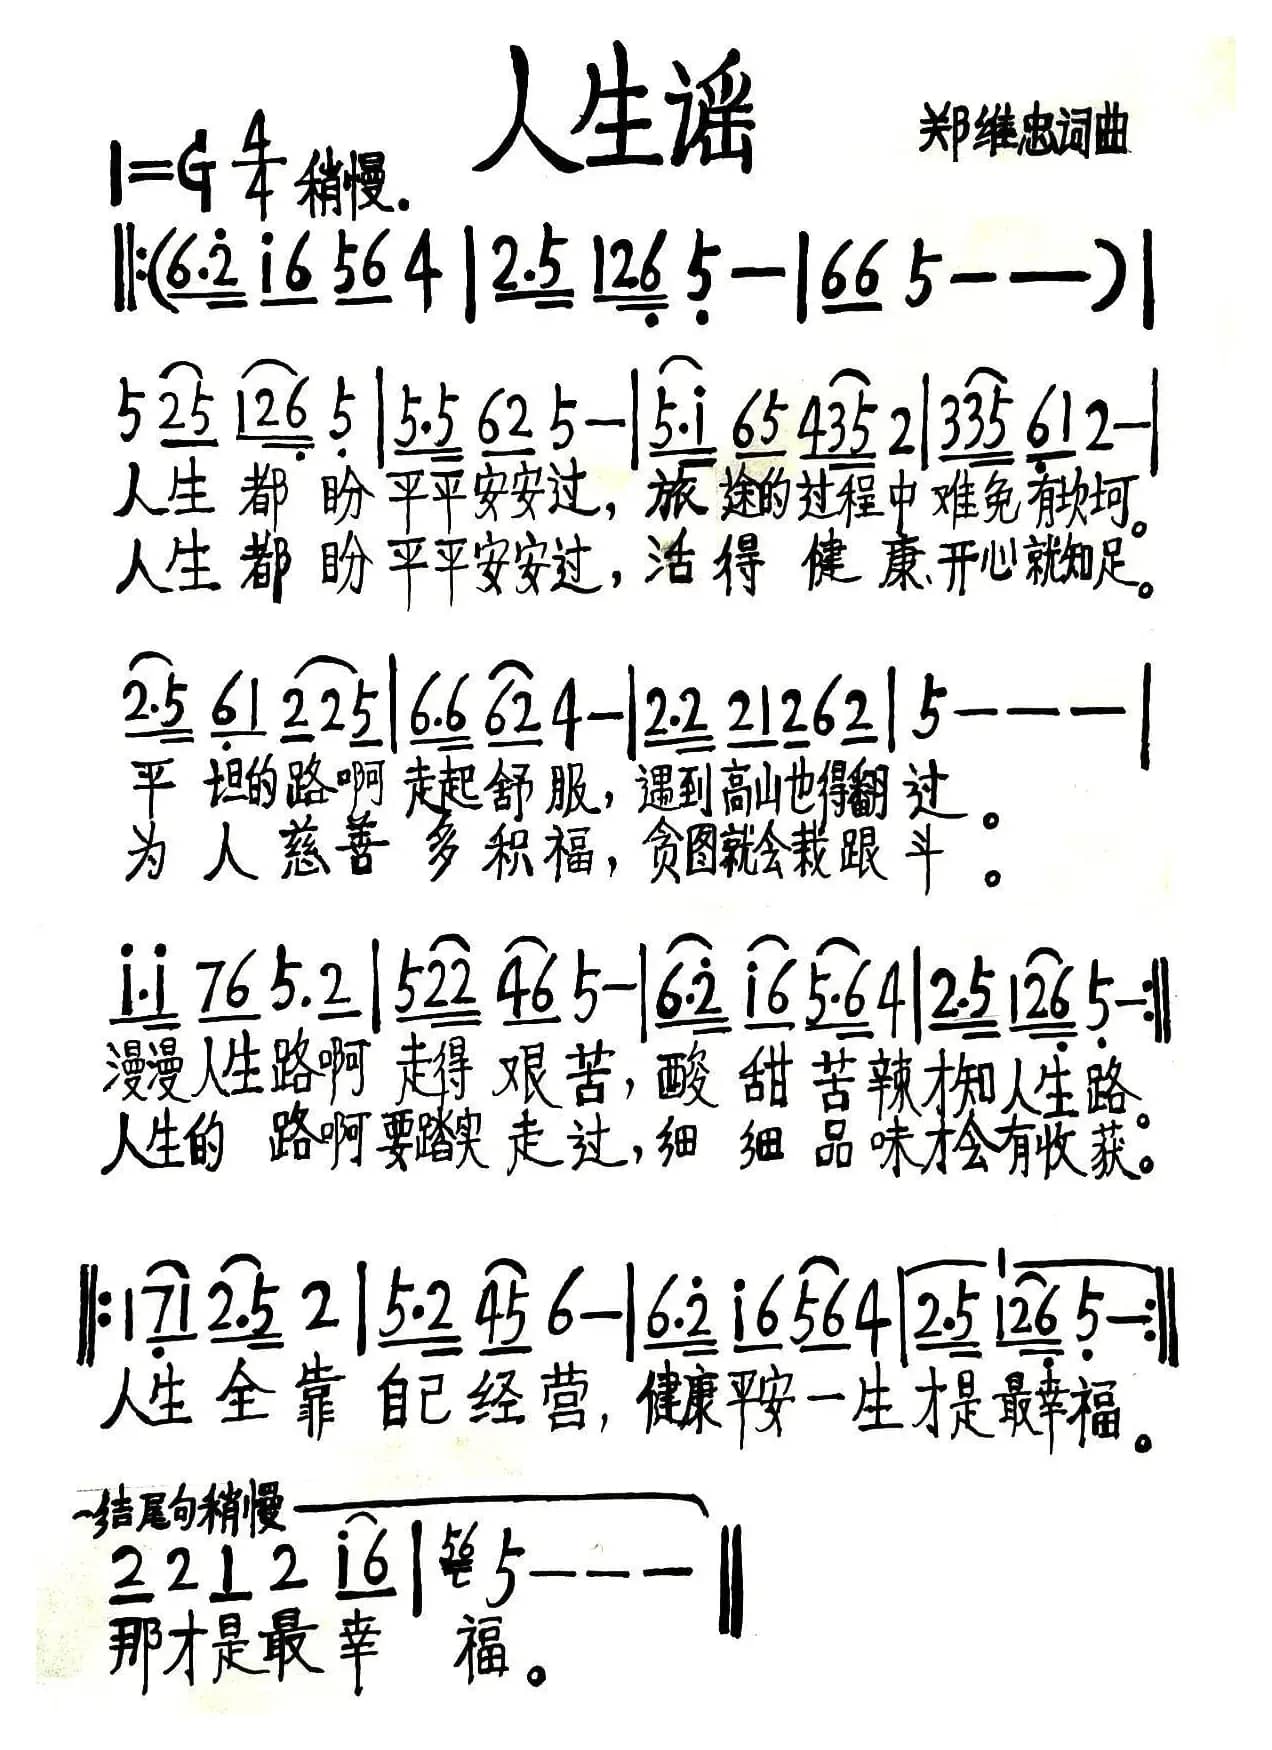 人生谣
郑维忠词曲
1=G 4/4 稍慢.
‖:(6.2̇ i̇6 56 4 | 2.5 126̣ 5̣ — | 66 5 — — —) |
5 25 126̣ 5̣ | 5.5 62 5 — | 5.i̇ 65 435 2 | 335 6̣1 2 — |
人生都盼平平安安过，旅途的过程中难免有坎坷。
人生都盼平平安安过，活得健康、开心就知足。
2.5 6̣1 225 | 6.6 62 4 — | 2.2 21262 | 5 — — — |
平坦的路啊走起舒服，遇到高山也得翻过。
为人慈善多积福，贪图就会栽跟斗。
i̇.i̇ 76 5.2 | 522 46 5 — | 6.2̇ i̇6 5.6 4 | 2.5 126̣ 5̣ — :‖
漫漫人生路啊走得艰苦，酸甜苦辣才知人生路。
人生的路啊要踏实走过，细细品味才会有收获。
‖: 17̣1 2.5 2 | 5.2 45 6 — | 6.2̇ i̇6 56 4 | 2.5 126̣ 5̣ — :‖
人生全靠自己经营，健康平安一生才是最幸福。
结尾句稍慢
2 2 1 2 i̇6 | 56 5 — — — ‖
那才是最幸福。